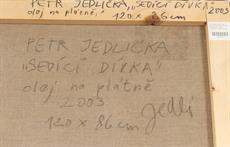 PETR JEDLIČKA, „SEDÍCÍ DÍVKA" 2003
olej na plátně, 120 x 86 cm
PETR JEDLIČKA
„SEDÍCÍ DÍVKA"
olej na plátně
2003
120 x 86 cm Jedli